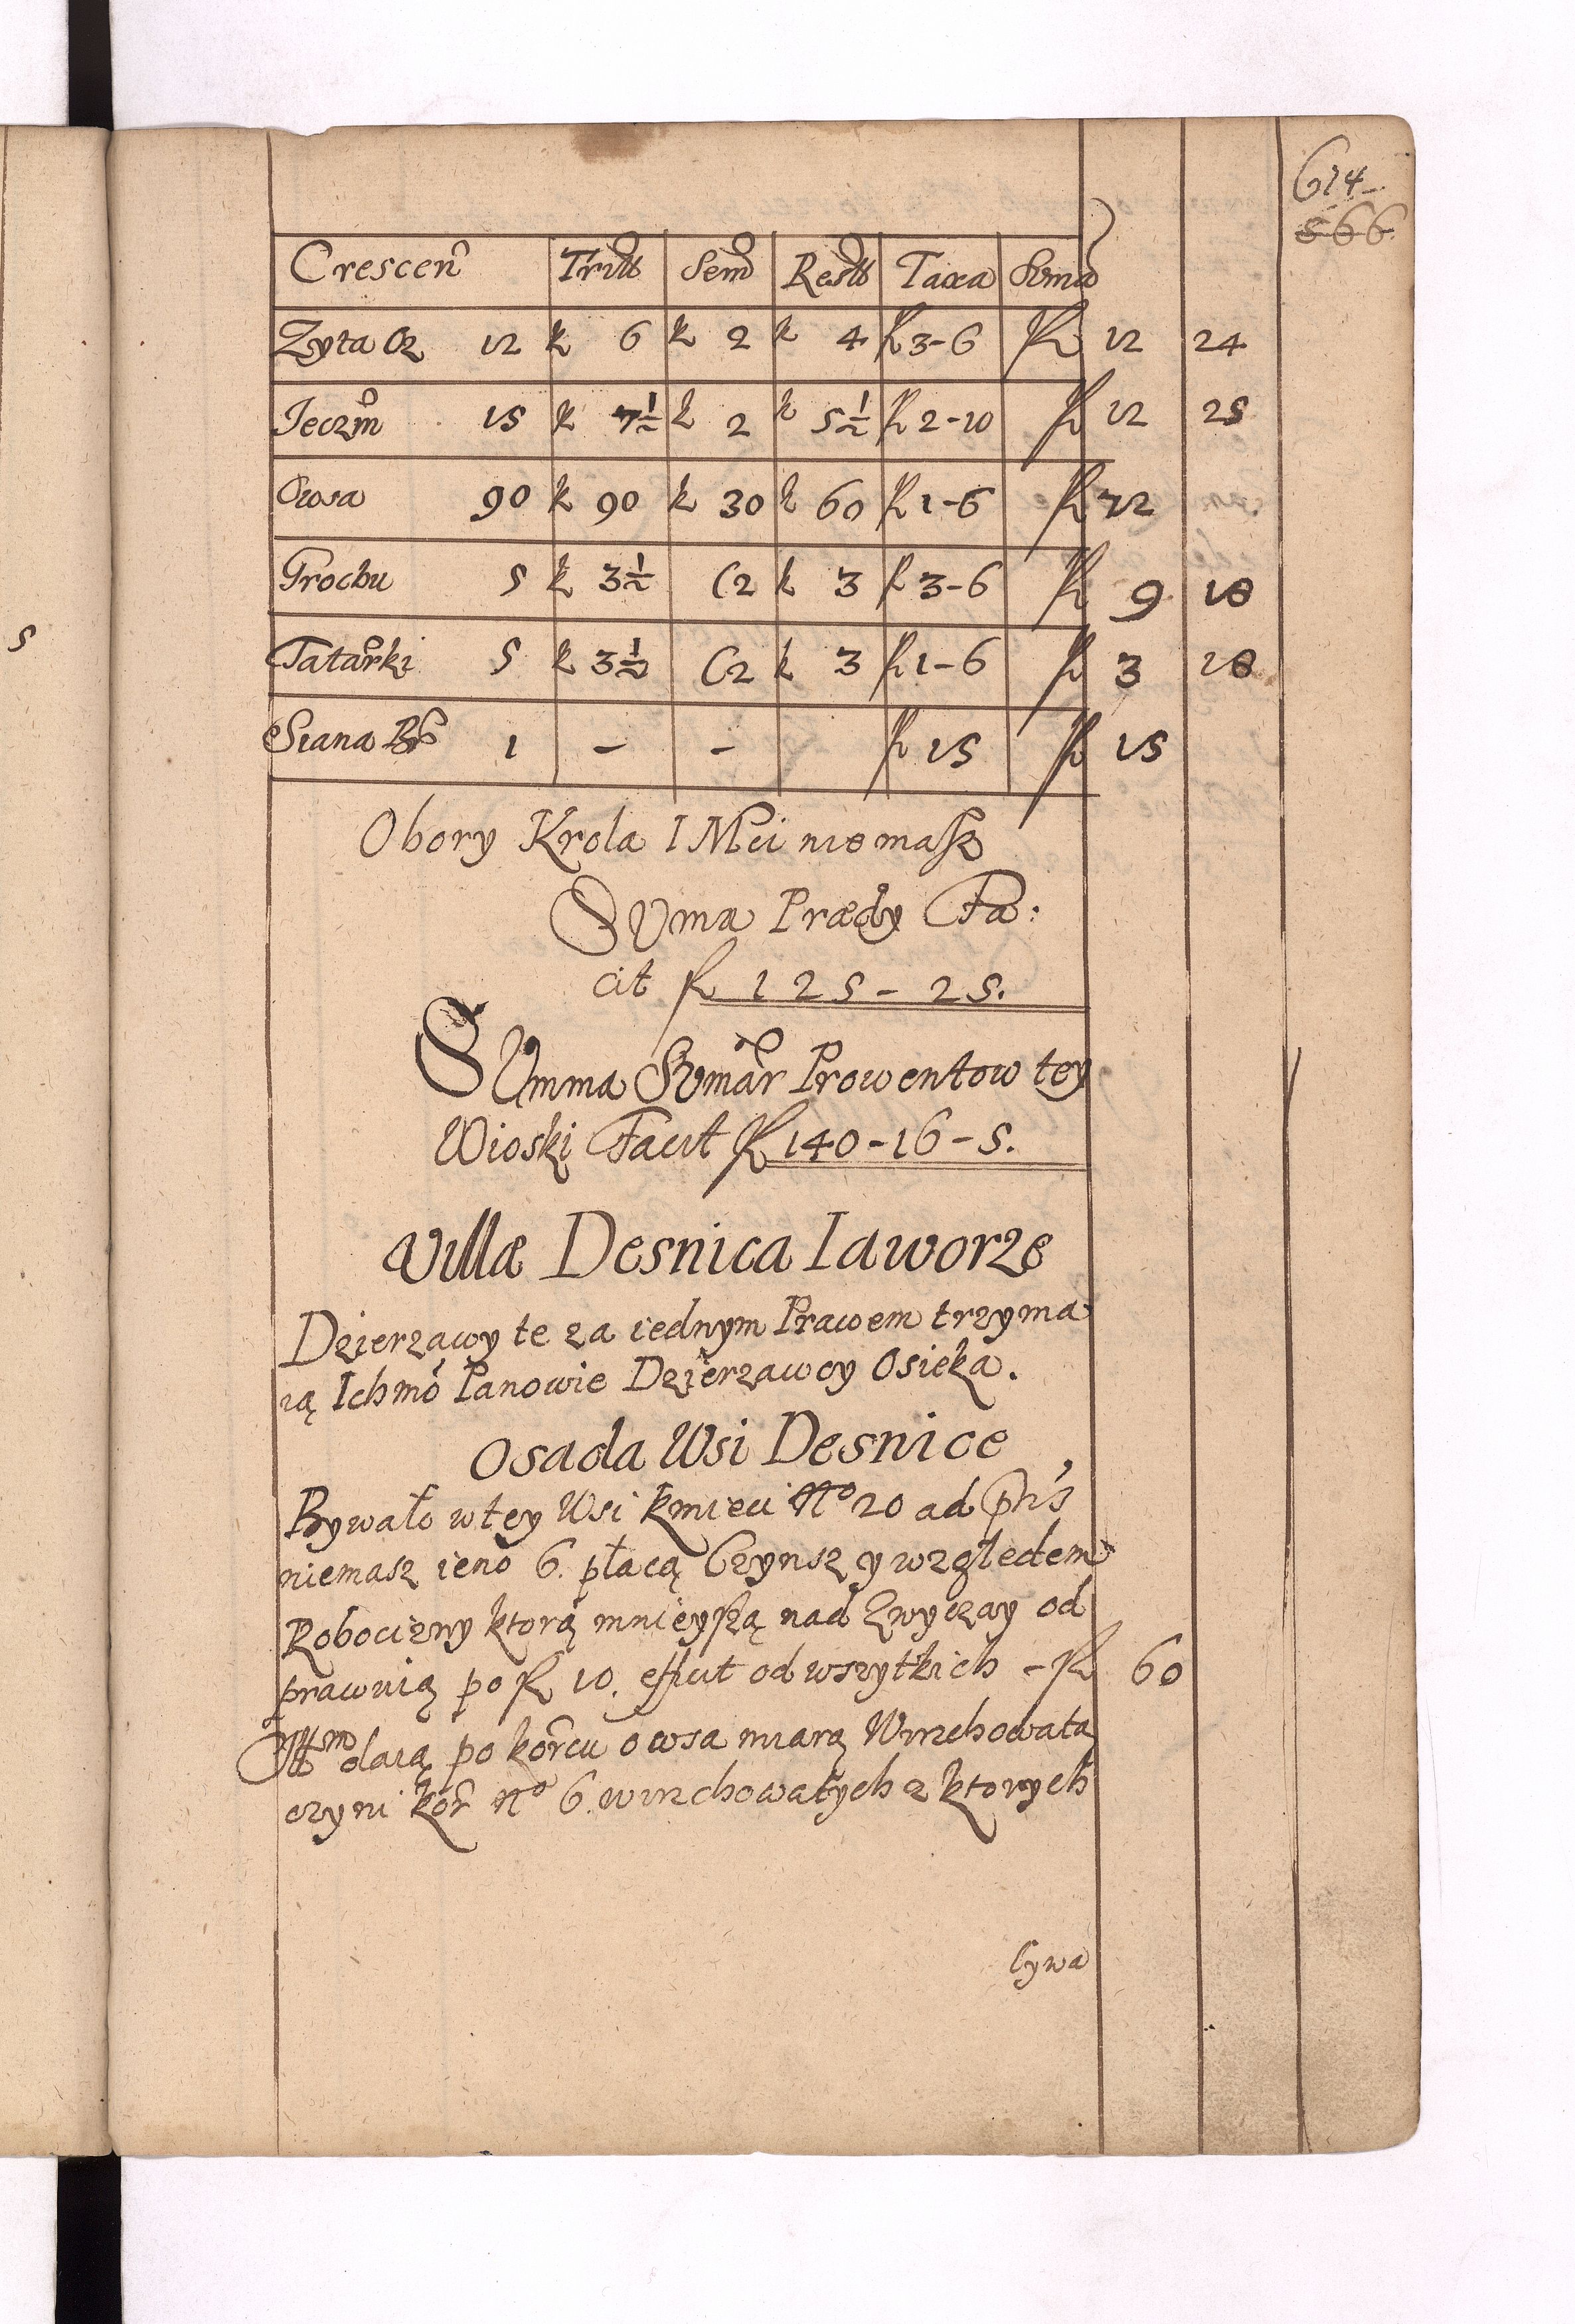 614
566
Crescen Tritt Sem Restt Taxa Suma
Zyta Cz 12 k 6 k 2 k 4 fl 3-6 fl 12 24
Ieczm 15 k 7½ k 2 k 5½ fl 2-10 fl 12 25
Owsa 90 k 90 k 30 k 60 fl 1-6 fl 72
Grochu 5 k 3½ C2 k 3 fl 3-6 fl 9 18
Tatarki 5 k 3½ C2 k 3 fl 1-6 fl 3 18
Siana 1 - - fl 15 fl 15
5
Obory Krola I Mci niemasz
SUma Prædy Fa:
cit fl 125-25.
SUmma Sumar Prowentow tey
Wioski Facit fl 140-16-5.
Villæ Desnica Iaworze
Dzierzawy te za iednym Prawem trzyma
ią Ichmć Panowie Dzierzawcy Osieka.
Osada Wsi Desnice
Bywało w tey Wsi kmieci No 20 ad pns
niemasz ieno 6. płacą Czynsz y względem
Robocizny ktorą mnieyszą nad Zwyczay od
prawuią po fl 10. effiut od wszytkich - fl 60
Ittm daią po korcu owsa miarą Wirzchowatą
czyni kor No 6. wirzchowatych z ktorych